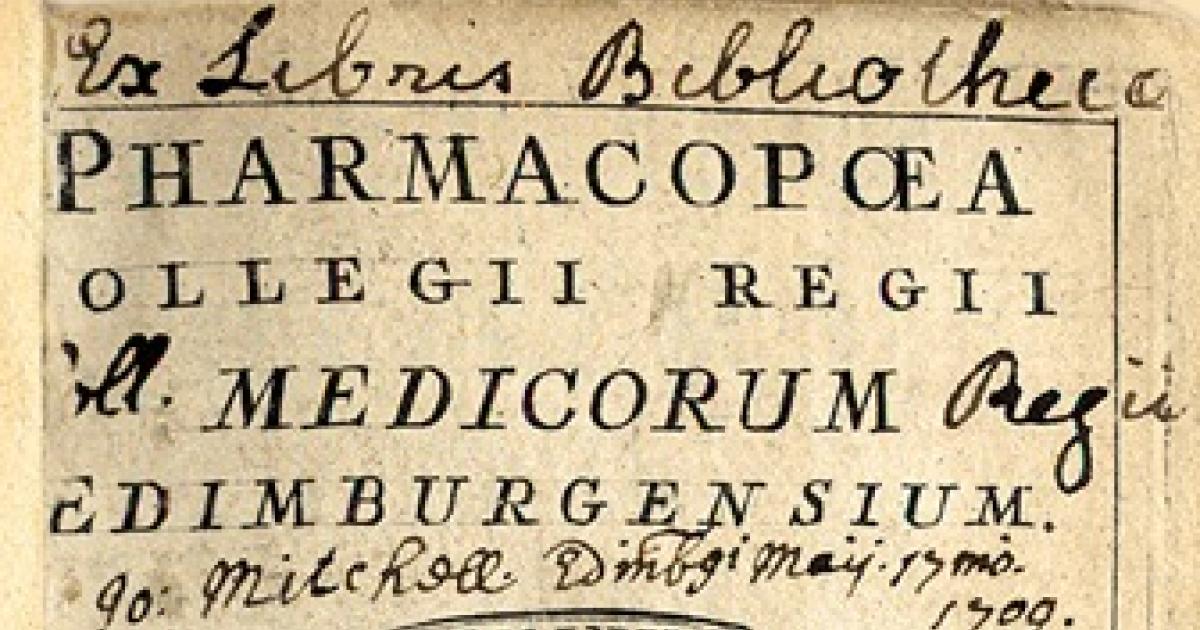 Ex Libris Bibliothecæ
PHARMACOPŒA
OLLEGII REGII
ll. MEDICORUM Regii
EDIMBURGENSIUM.
Jo: Mitchell Edinbgi Maij. 17mo.
1709.